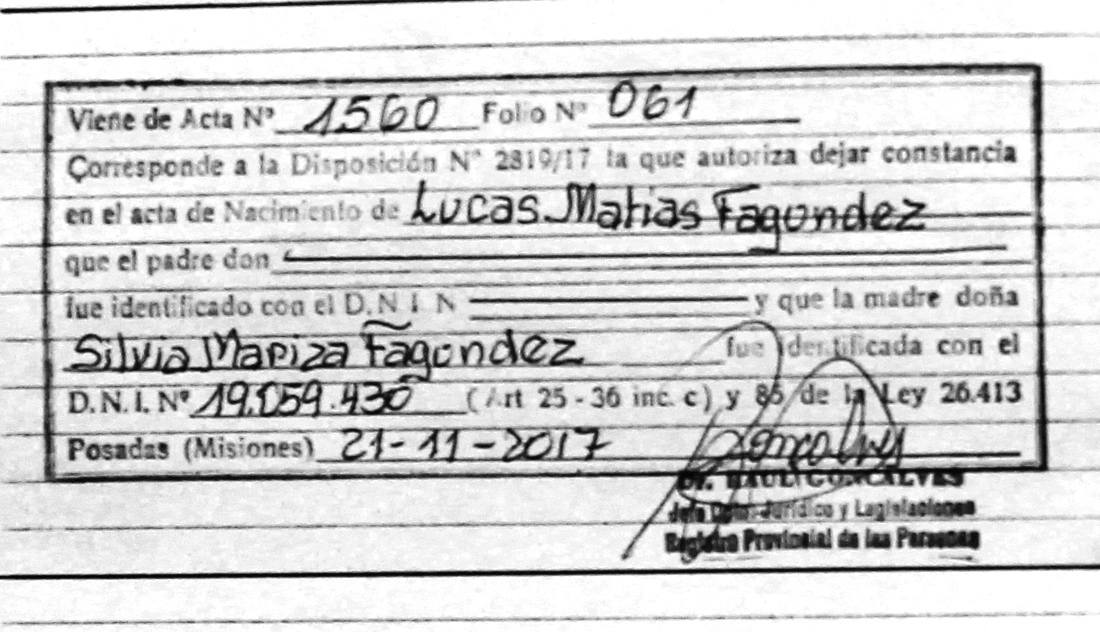 Viene de Acta Nº 1560 Folio Nº 061
Corresponde a la Disposición Nº 2819/17 la que autoriza dejar constancia
en el acta de Nacimiento de Lucas Matias Fagondez
que el padre don
fue identificado con el D.N.I. N y que la madre doña
Silvia Mariza Fagondez fue identificada con el
D.N.I. Nº 19.059.430 (Art 25 - 36 inc. c) y 85 de la Ley 26.413
Posadas (Misiones) 21-11-2017
Dr. RAUL GONCALVES
Jefe Dpto. Jurídico y Legislaciones
Registro Provincial de las Personas